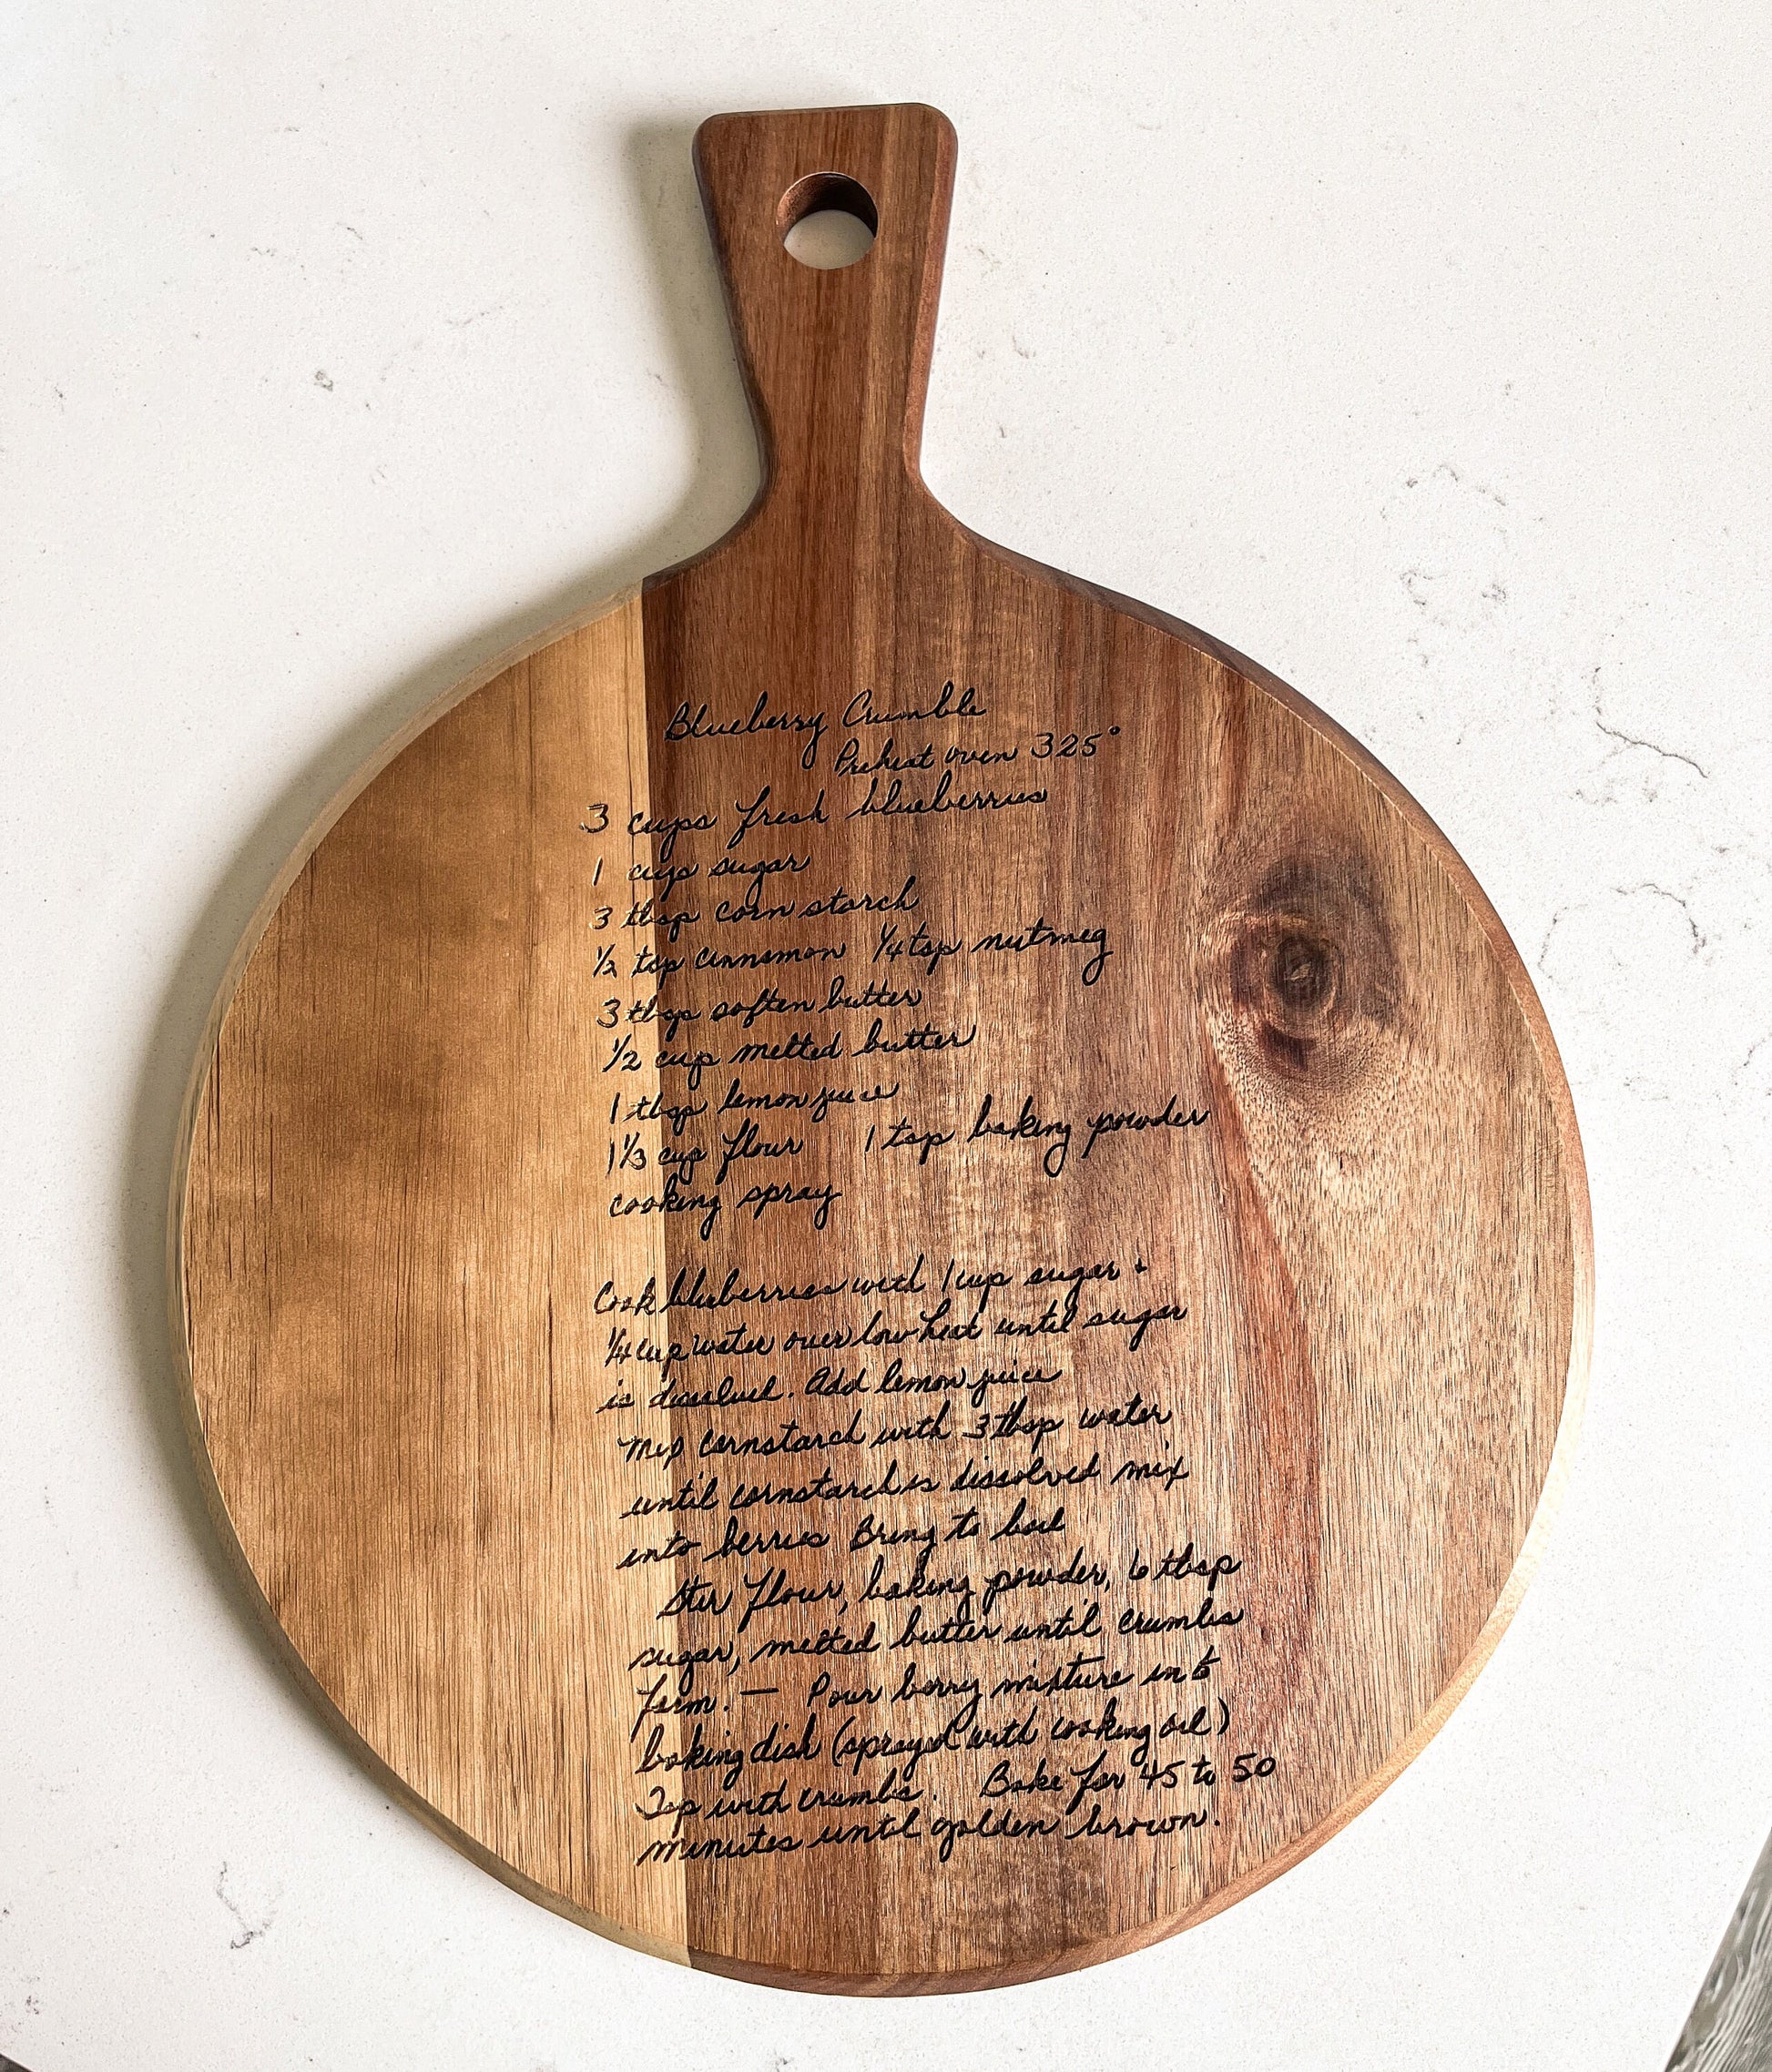 Blueberry Crumble
Preheat oven 325°
3 cups fresh blueberries
1 cups sugar
3 tbsp corn starch
1/2 tsp cinnamon 1/4 tsp nutmeg
3 tbsp soften butter
1/2 cup melted butter
1 tbsp lemon juice
1 1/3 cup flour 1 tsp baking powder
cooking spray
Cook blueberries with 1 cup sugar +
1/4 cup water over low heat until sugar
is dissolved. Add lemon juice
Mix cornstarch with 3 tbsp water
until cornstarch is dissolved mix
into berries Bring to boil
Stir flour, baking powder, 6 tbsp
sugar, melted butter until crumbs
form. — Pour berry mixture into
baking dish (sprayed with cooking oil)
Top with crumbs. Bake for 45 to 50
minutes until golden brown.